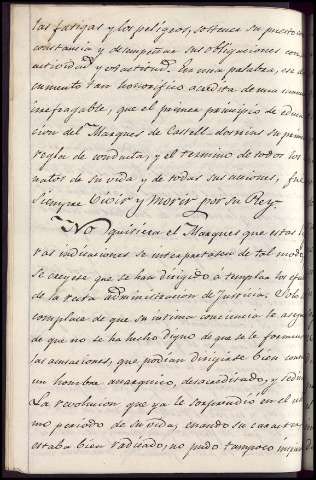 las fatigas y los peligros, sostener su puesto con
constancia y desempeñar sus obligaciones con
actividad y exactitud. En una palabra, ese do
cumento tan honorifico acredita de una manera
irrefragable, que el primer principio de educa
cion del Marques de Castell-dosrius su primera
regla de conducta, y el termino de todos los
natos de su vida y de todas sus acciones, fue
siempre Vivir y Morir por su Rey.
No quisiera el Marques que estas
ras indicaciones se interpretasen de tal modo
Se creyese que se han dirigido a templar los
de la recta administracion de Justicia. Solo
complace de que su intima conciencia le asegu
de que no se ha hecho digno de que se le formasen
las acusaciones, que podian dirigirse bien contra
un hombre anarquico, desacreditado, y sedicio
La revolucion que ya le sorprendio en el
mo periodo de su vida, cuando su caracter
estaba bien radicado, no pudo tampoco